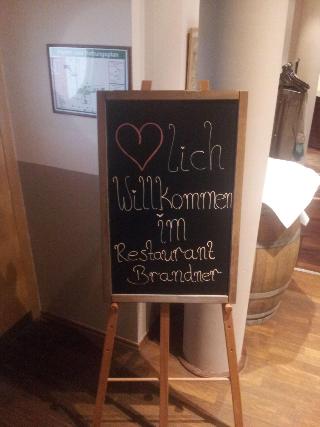 lich
Willkommen
im
Restaurant
Brandner